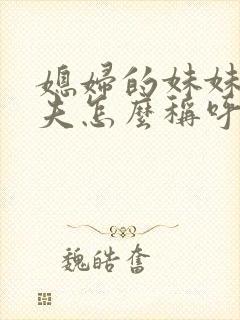 媳婦的妹妹
夫怎麼稱呼
魏皓奮